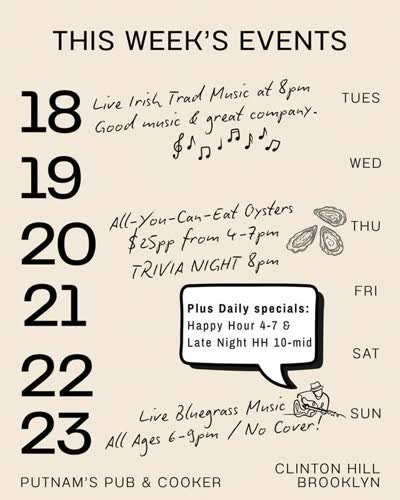 THIS WEEK'S EVENTS
18 Live Irish Trad Music at 8pm TUES
Good music & great company.
19 WED
All-You-Can-Eat Oysters
20 $25pp from 4-7pm THU
TRIVIA NIGHT 8pm
21 FRI
Plus Daily specials:
Happy Hour 4-7 &
Late Night HH 10-mid
22 SAT
23 Live Bluegrass Music SUN
All Ages 6-9pm / No Cover!
PUTNAM'S PUB & COOKER
CLINTON HILL
BROOKLYN